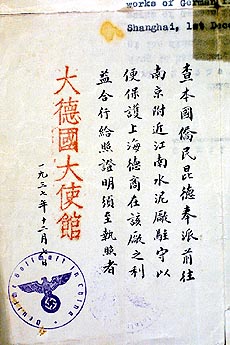 works of German
Shanghai, 1st Dec
查本國僑民昆德奉派前往
南京附近江南水泥廠駐守以
便保護上海德商在該廠之利
益合行給照證明須至執照者
大德國大使館
一九三七年十二月 日
Deutsche Botschaft in China